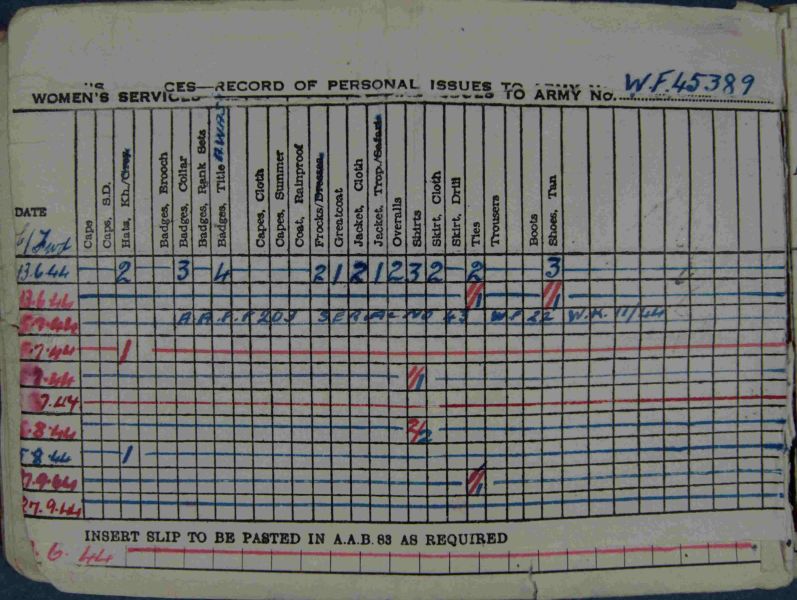 CES—RECORD OF PERSONAL ISSUES TO ARMY
WOMEN'S SERVICES TO ARMY NO. W.F.45389
DATE
Caps
Caps, S.D.
Hats, Kh./
Badges, Brooch
Badges, Collar
Badges, Rank Sets
Badges, Title
Capes, Cloth
Capes, Summer
Coat, Rainproof
Frocks/Dresses
Greatcoat
Jacket, Cloth
Jacket, Trop./
Overalls
Shirts
Skirt, Cloth
Skirt, Drill
Ties
Trousers
Boots
Shoes, Tan
13.6.44 2 3 4 2 1 2 1 2 3 2 2 3
13.6.44 1/1 1/1
A.A.F.P. SERIAL NO 43 11/44
.7.44 1
1/1
7.44
.8.44 2/2
.8.44 1
7.9.44 1/1
27.9.44
INSERT SLIP TO BE PASTED IN A.A.B. 83 AS REQUIRED
.6.44